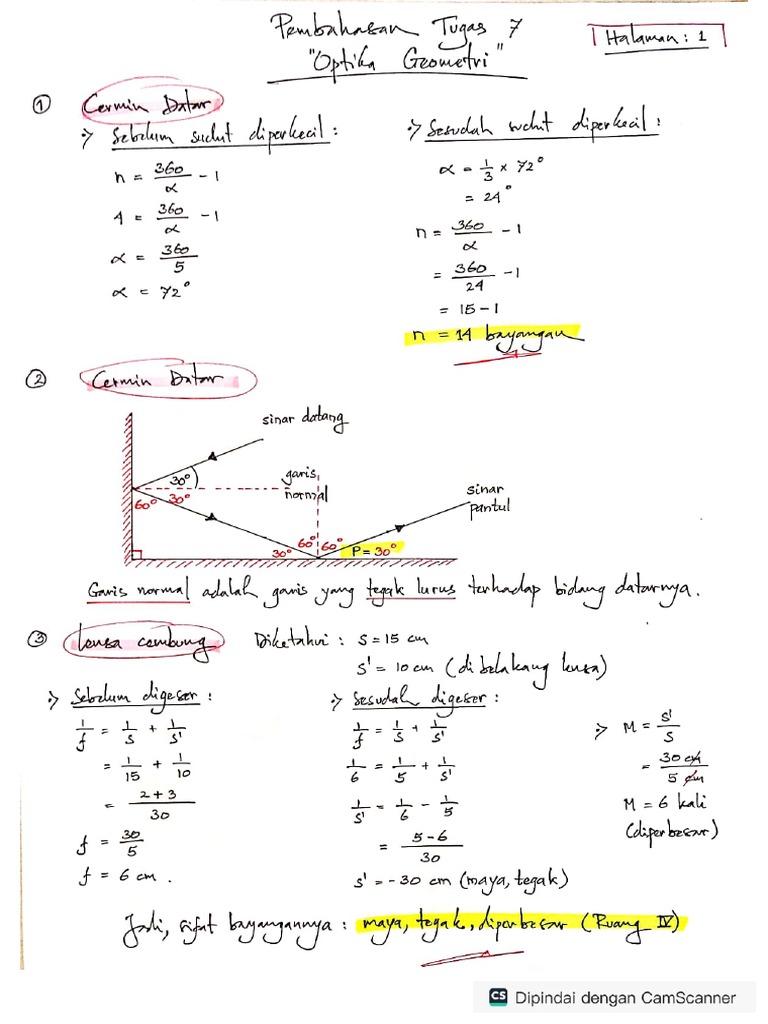 Pembahasan Tugas 7
"Optika Geometri"
Halaman: 1
① Cermin Datar
:) Sebelum sudut diperkecil :
n = 360/α - 1
4 = 360/α - 1
α = 360/5
α = 72°
:) Sesudah sudut diperkecil :
α = 1/3 × 72°
= 24°
n = 360/α - 1
= 360/24 - 1
= 15 - 1
n = 14 bayangan
② Cermin Datar
sinar datang
30°
garis
normal
sinar
pantul
60° 30°
30° 60° 60° P = 30°
Garis normal adalah garis yang tegak lurus terhadap bidang datarnya.
③ Lensa cembung
Diketahui : s = 15 cm
s' = 10 cm (di belakang lensa)
:) Sebelum digeser :
1/f = 1/s + 1/s'
= 1/15 + 1/10
= 2+3/30
f = 30/5
f = 6 cm.
:) Sesudah digeser :
1/f = 1/s + 1/s'
1/6 = 1/5 + 1/s'
1/s' = 1/6 - 1/5
= 5-6/30
s' = -30 cm (maya, tegak)
:) M = s'/s
= 30 cm/5 cm
M = 6 kali
(diperbesar)
Jadi, sifat bayangannya : maya, tegak, diperbesar (Ruang IV)
CS Dipindai dengan CamScanner